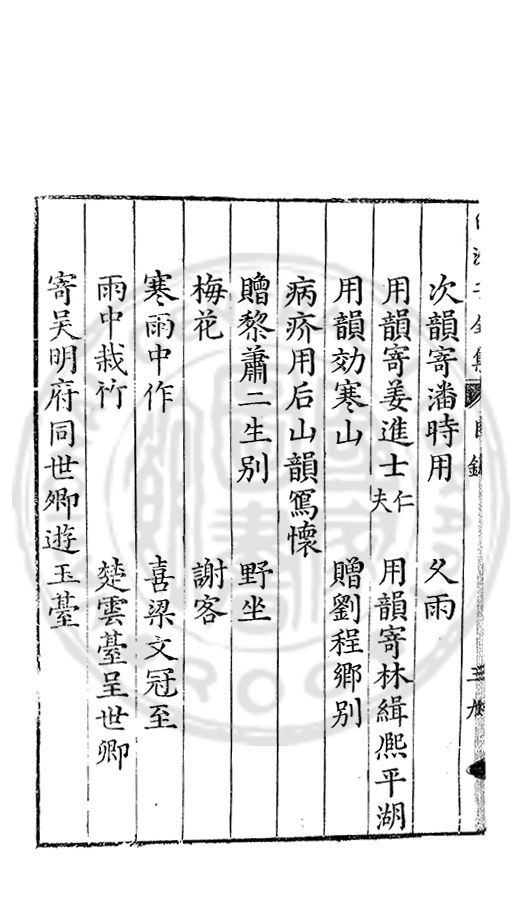 次韻寄潘時用 久雨
用韻寄姜進士仁夫 用韻寄林緝熈平湖
用韻効寒山 贈劉程鄉別
病疥用后山韻寫懷
贈黎蕭二生別 野坐
梅花 謝客
寒雨中作 喜梁文冠至
雨中栽竹 楚雲臺呈世卿
寄吴明府同世卿遊玉臺